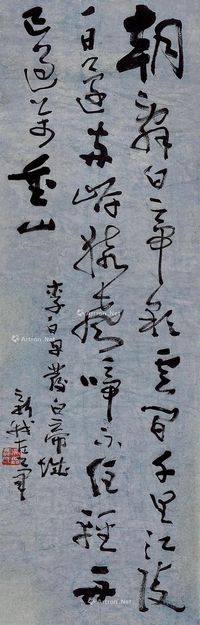 朝辭白帝彩雲間千里江陵
一日還兩岸猿聲啼不住輕舟
已過萬重山
李白早發白帝城
新我左筆
Artron.Net